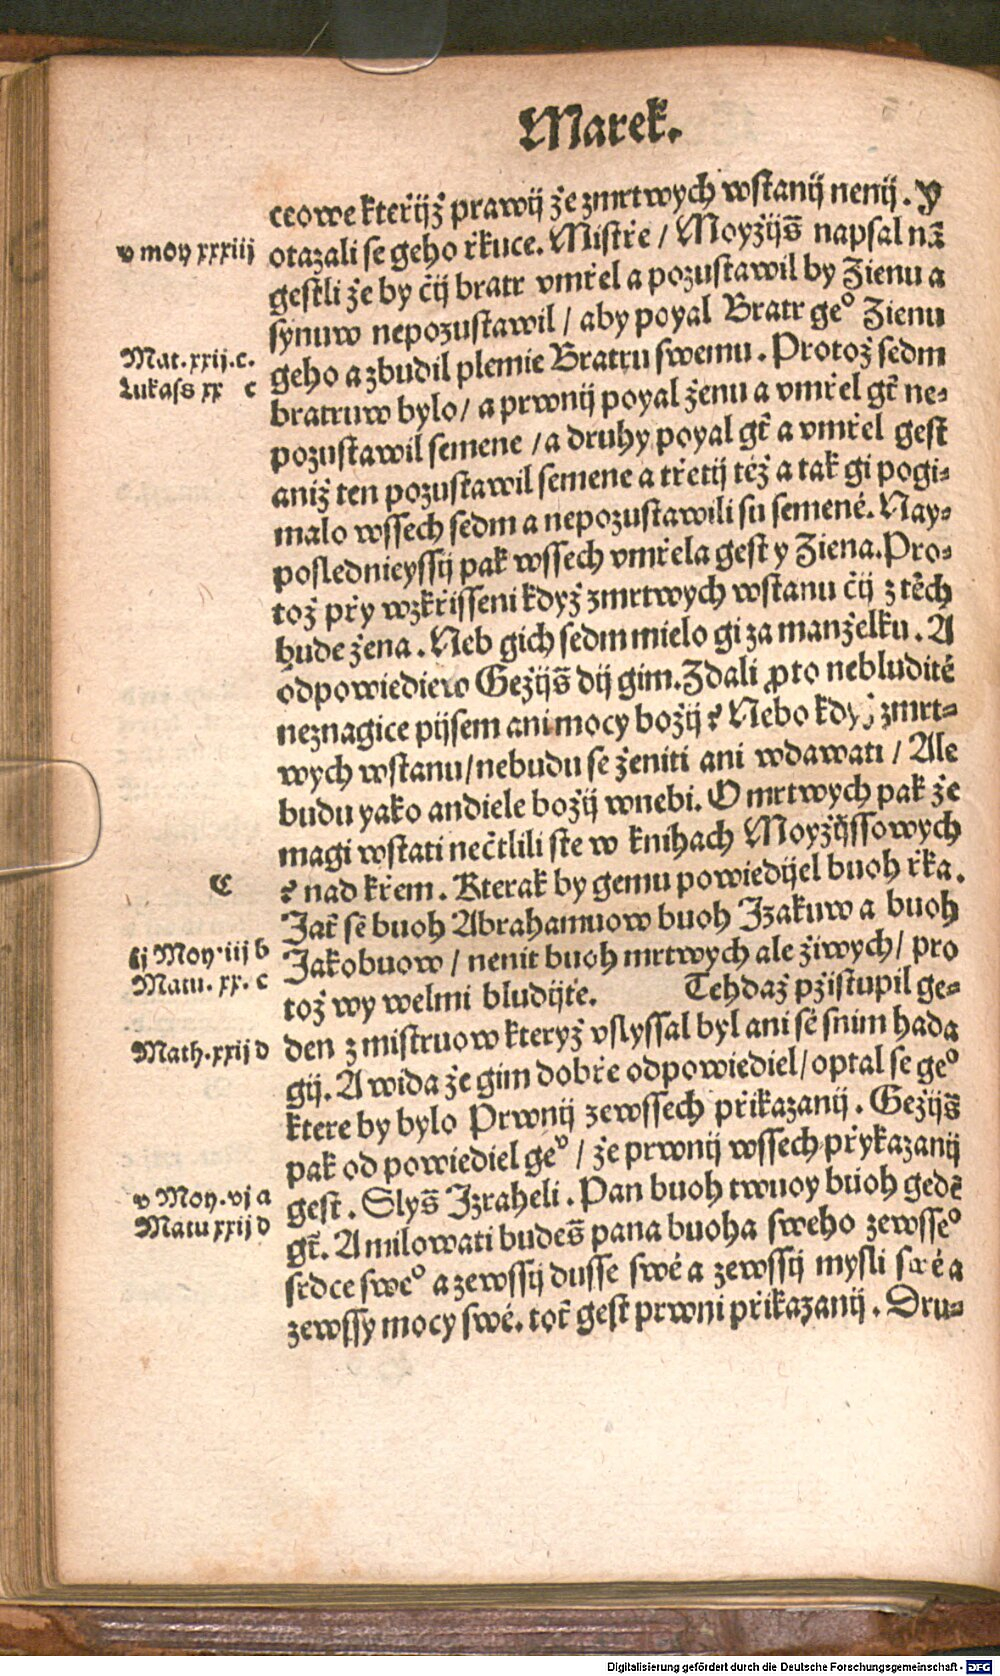 Marek.
ceowe kteřijž prawij že zmrtwych wstanij nenij. Y
v moy xxxiij
otazali se geho řkuce. Mistře / Moyžijš napsal nā
gestli že by čij bratr vmřel a pozustawil by Zienu a
synuw nepozustawil / aby poyal Bratr ge° Zienu
Mat. xxij. c.
geho a zbudil plemie Bratru swemu. Protož sedm
Lukass xx c
bratruw bylo / a prwnij poyal ženu a vmřel gt̄ ne⸗
pozustawil semene / a druhy poyal gt̄ a vmřel gest
aniž ten pozustawil semene a třetij též a tak gi pogi⸗
malo wssech sedm a nepozustawili su semené. Nay⸗
poslednieyssij pak wssech vmřela gest y Ziena. Pro⸗
tož přy wzkřisseni když zmrtwych wstanu čij z těch
bude žena. Neb gich sedm mielo gi za manželku. A
odpowiediew Gežijš dij gim. Zdali ꝓto nebludité
neznagice pijsem ani mocy božij ? Nebo kdy zmrt⸗
wych wstanu / nebudu se ženiti ani wdawati / Ale
budu yako andiele božij wnebi. O mrtwych pak že
magi wstati nečtlili ste w knihach Moyžijssowych
C
? nad křem. Kterak by gemu powiedijel buoh řka.
Jat̄ sē buoh Abrahamuow buoh Jzakuw a buoh
ij Moy iij b
Jakobuow / nenit buoh mrtwych ale žiwych / pro
Matu. xx. c
tož wy welmi bludijte. Tehdaž přistupil ge⸗
den z mistruow kteryž vslyssal byl ani sē snim hada
Math. xxij d
gij. A wida že gim dobře odpowiediel / optal se ge°
ktere by bylo Prwnij zewssech přikazanij. Gežijš
pak odpowiediel ge° / že prwnij wssech přykazanij
v Moy. vj a
gest. Slyš Jzraheli. Pan buoh twuoy buoh gedē
Matu xxij d
gt̄. A milowati budeš pana buoha sweho zewsse°
srdce swe° a zewssij dusse swé a zewssij mysli swé a
zewssy mocy swé. tot̄ gest prwni přikazanij. Dru⸗
Digitalisierung gefördert durch die Deutsche Forschungsgemeinschaft - DFG